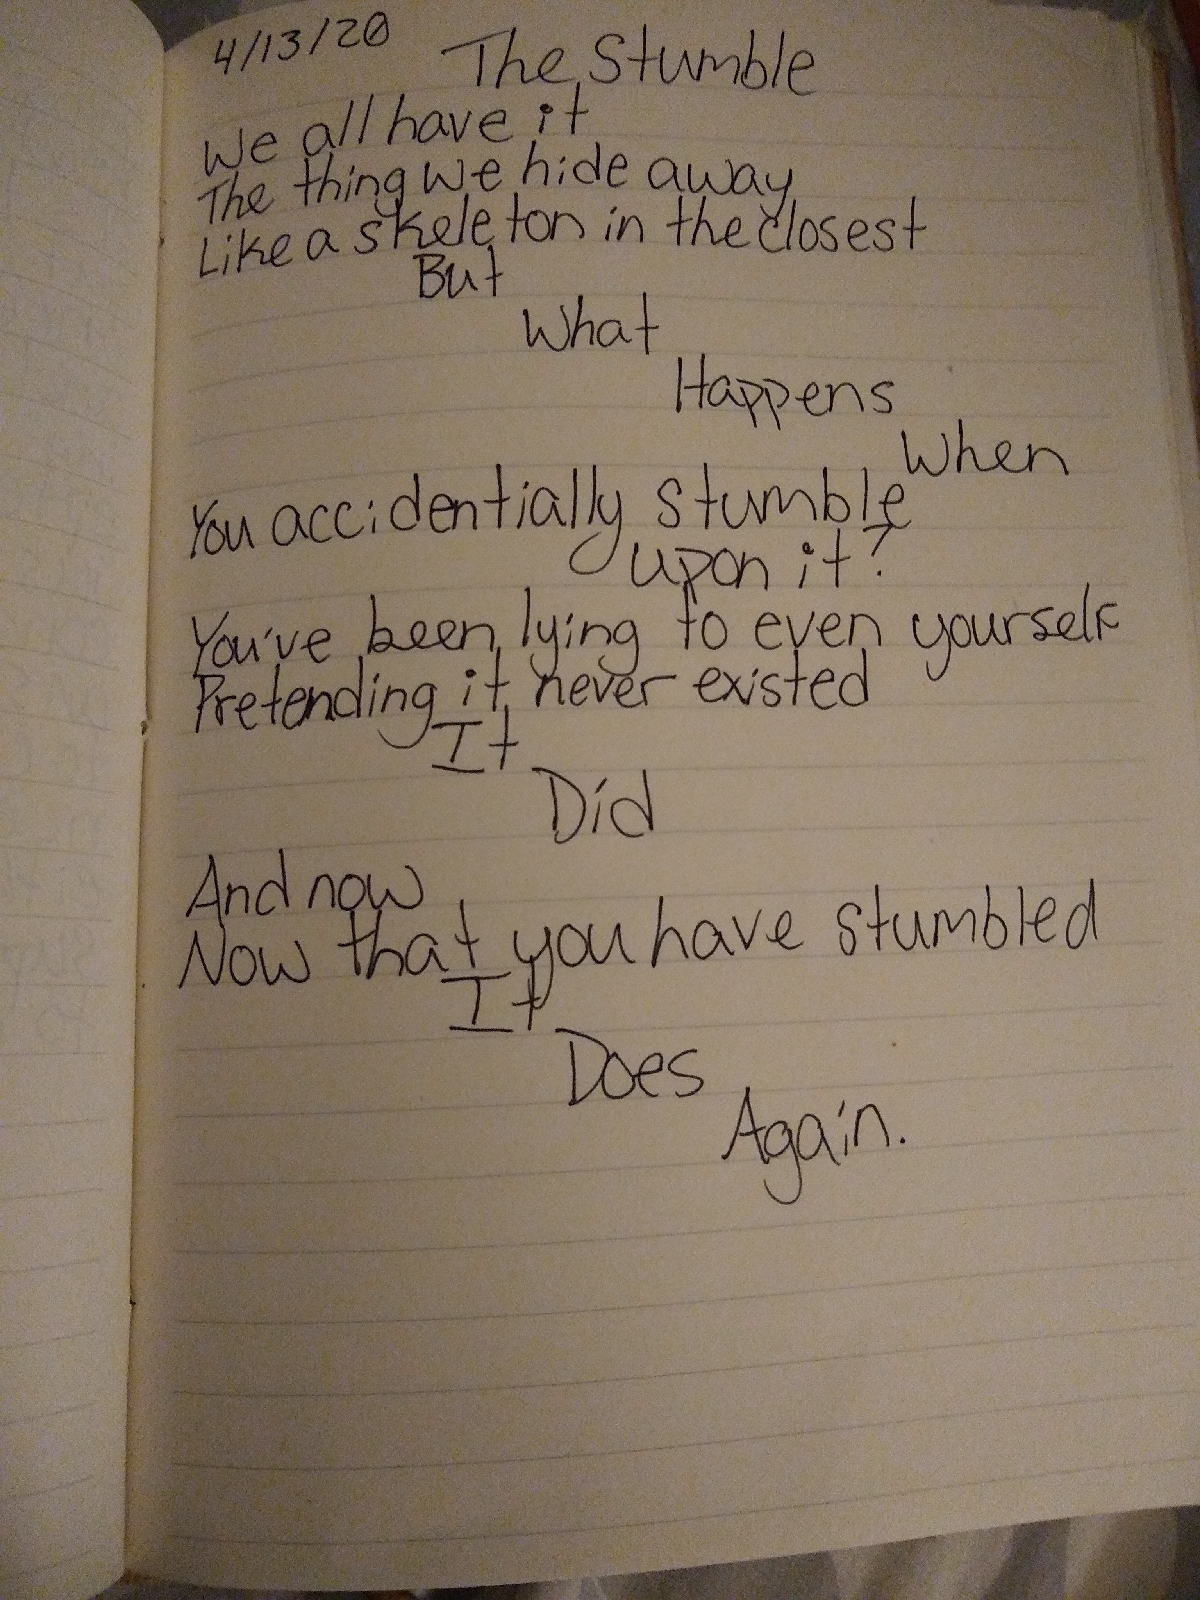 4/13/20 The Stumble
We all have it
The thing we hide away
Like a skeleton in the closest
But
What
Happens
When
You accidentially stumble
upon it?
You've been lying to even yourself
Pretending it never existed
It
Did
And now
Now that you have stumbled
It
Does
Again.